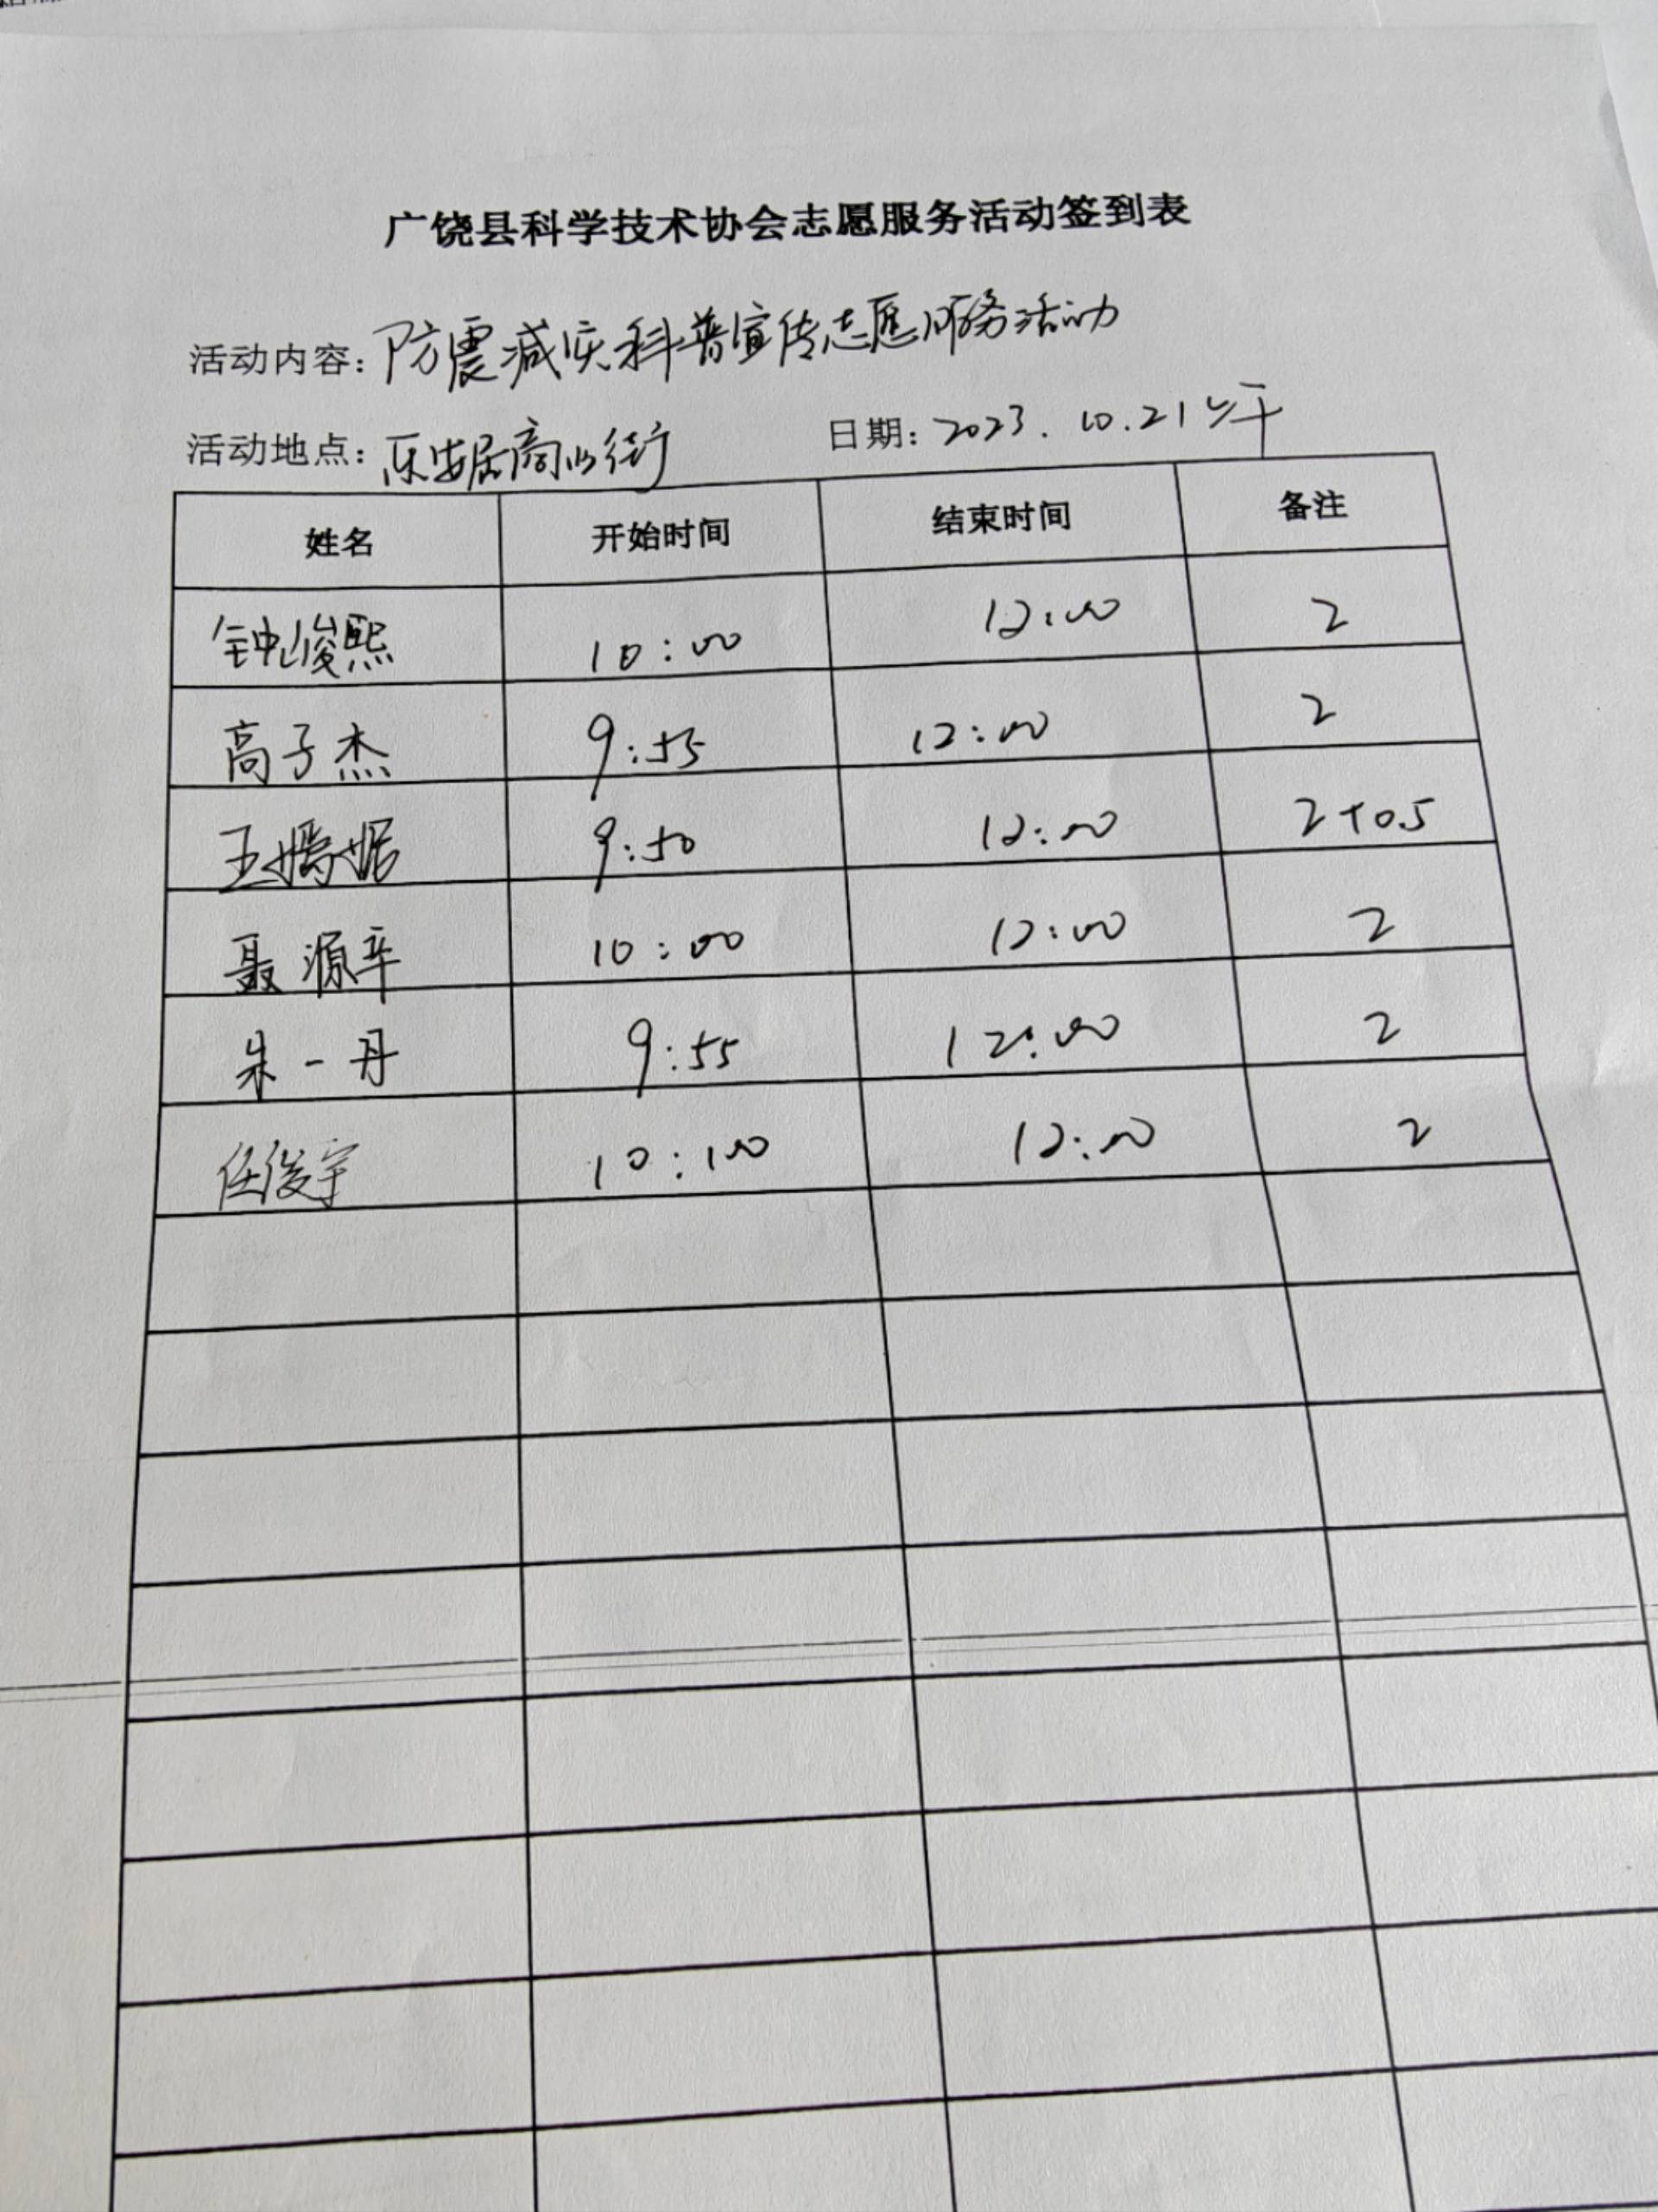 广饶县科学技术协会志愿服务活动签到表
活动内容：防震减灾科普宣传志愿服务活动
活动地点：乐安居商业街 日期：2023.10.21上午
姓名 开始时间 结束时间 备注
钟峻熙 10:00 12:00 2
高子杰 9:55 12:00 2
王嫣 9:50 12:00 2+0.5
聂源辛 10:00 12:00 2
朱一丹 9:55 12:00 2
任俊宇 10:00 12:00 2